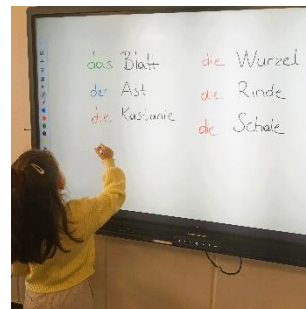 das Blatt
der Ast
die Kastanie
die Wurzel
die Rinde
die Schale